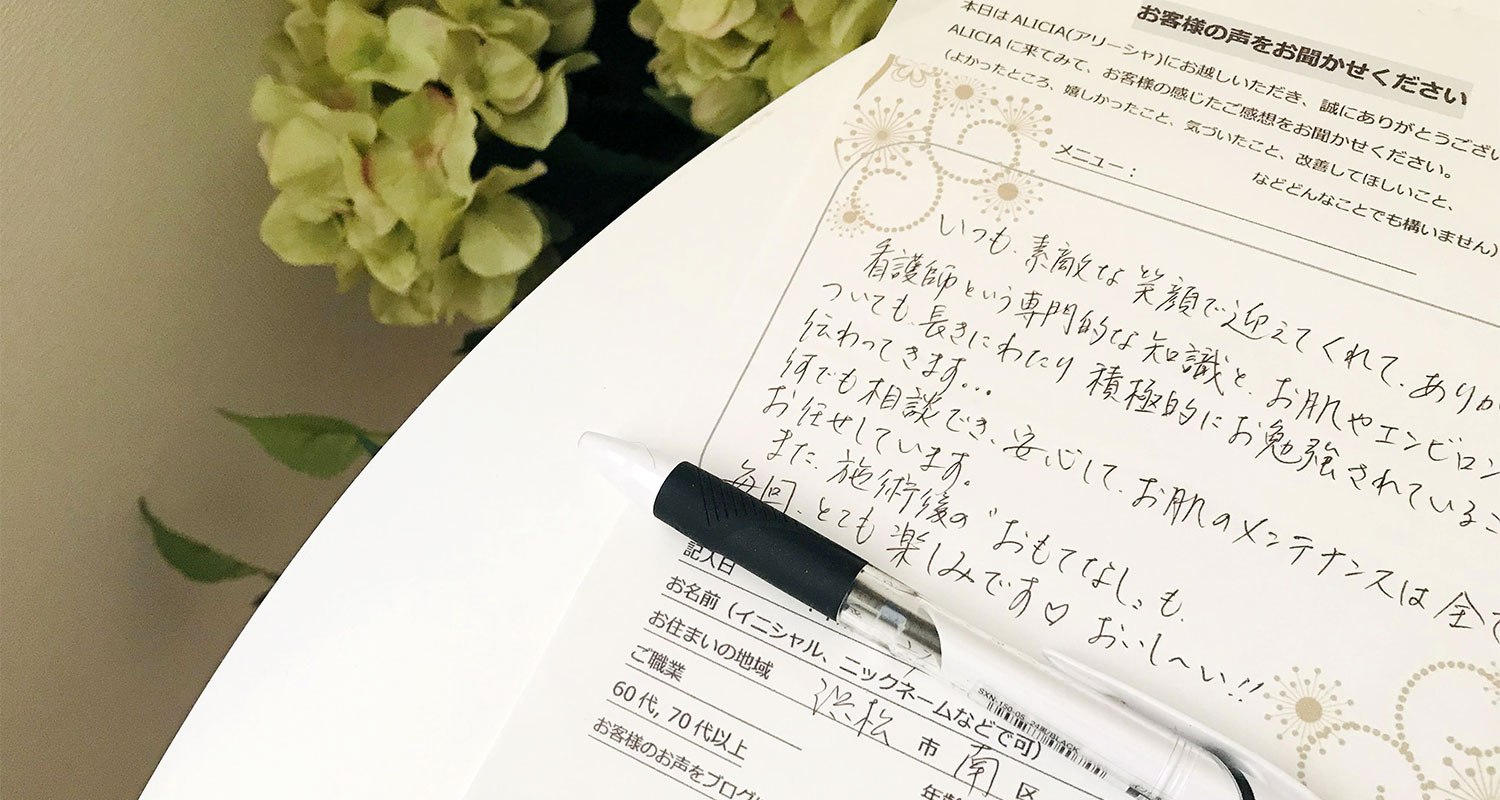 お客様の声をお聞かせください
本日はALICIA(アリーシャ)にお越しいただき、誠にありがとうござい
ALICIAに来てみて、お客様の感じたご感想をお聞かせください。
(よかったところ、嬉しかったこと、気づいたこと、改善してほしいこと、
などどんなことでも構いません)
メニュー：
いつも、素敵な笑顔で迎えてくれて、ありが
看護師という専門的な知識と、お肌やエンビロン
ついても、長きにわたり積極的にお勉強されているこ
伝わってきます…
何でも相談でき、安心して、お肌のメンテナンスは全て
お任せしています。
また、施術後の“おもてなし”も、
毎回、とても楽しみです♡ おいし〜い!!
記入日
お名前（イニシャル、ニックネームなどで可）
お住まいの地域 浜松 市 南 区
ご職業 年齢
60代, 70代以上
お客様のお声をブログ
SXN-150-05 24黒/BLACK